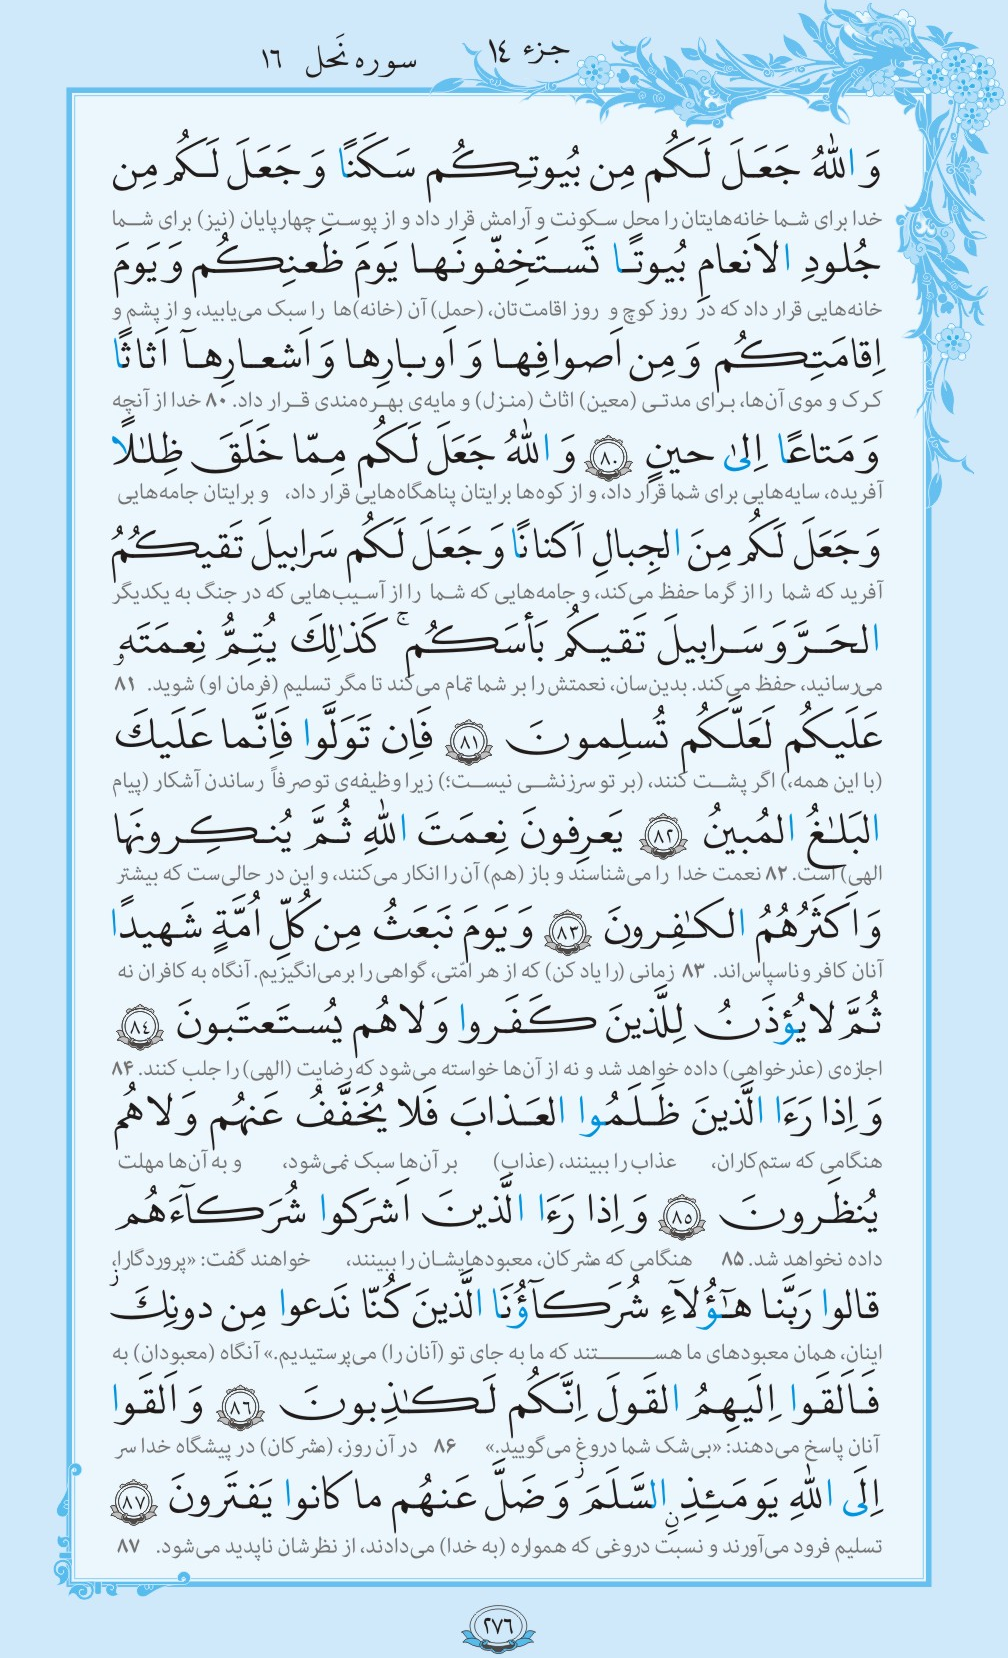 جزء ١٤
سوره نَحل ١٦
وَ اللّٰهُ جَعَلَ لَـكُم مِن بُيوتِـكُم سَـكَنًا وَ جَعَلَ لَـكُم مِن
خدا برای شـما خانه‌هایتان را محل سـکونت و آرامش قرار داد و از پوسـت چهارپایان (نیز) برای شـما
جُلودِ الاَنعامِ بُيوتًـا تَسـتَخِفّونَـها يَومَ ظَعنِكُم وَ يَومَ
خانه‌هایی قرار داد که در روز کوچ و روز اقامت‌تان، (حمل) آن (خانه)ها را سبک می‌یابید، و از پشم و
اِقامَتِـكُم وَ مِن اَصوافِـها وَ اَوبـارِها وَ اَشعـارِهـآ اَثاثًا
کـرک و موی آن‌ها، بـرای مدتـی (معین) اثاث (منـزل) و مایه‌ی بهـره‌مندی قـرار داد. ۸۰ خدا از آنچه
وَ مَتاعًا اِلىٰ حينٍ ٨٠ وَ اللّٰهُ جَعَلَ لَـكُم مِـمّا خَلَقَ ظِلـٰلًا
آفریده، سایه‌هایی برای شما قرار داد، و از کوه‌ها برایتان پناهگاه‌هایی قرار داد، و برایتان جامه‌هایی
وَ جَعَلَ لَكُم مِنَ الجِبالِ اَكنانًا وَ جَعَلَ لَكُم سَرابيلَ تَقيكُمُ
آفرید که شما را از گرما حفظ می‌کند، و جامه‌هایی که شـما را از آسـیب‌هایی که در جنگ به یکدیگر
الحَـرَّ وَ سَـرابيلَ تَقيـكُم بَأسَـكُم ۚ كَذٰلِكَ يُتِمُّ نِعمَتَهٗ
می‌رسانید، حفظ می‌کند. بدین‌سان، نعمتش را بر شما تمام می‌کند تا مگر تسلیم (فرمان او) شوید. ۸۱
عَلَيكُم لَعَلَّـكُم تُسلِـمونَ ٨١ فَاِن تَوَلَّوا فَاِنَّما عَلَيكَ
(با این همه،) اگر پشـت کنند، (بر تو سرزنشـی نیسـت؛) زیرا وظیفه‌ی تو صرفاً رساندن آشکار (پیام
البَلـٰغُ المُبينُ ٨٢ يَعرِفونَ نِعمَتَ اللّٰهِ ثُـمَّ يُنـكِـرونَها
الهی) است. ۸۲ نعمت خدا را می‌شناسند و باز (هم) آن را انکار می‌کنند، و این در حالی‌ست که بیشتر
وَ اَكثَرُهُمُ الكـٰفِـرونَ ٨٣ وَ يَومَ نَبعَثُ مِن كُلِّ اُمَّةٍ شَهيدًا
آنان کافر و ناسپاس‌اند. ۸۳ زمانی (را یاد کن) که از هر امّتی، گواهی را برمی‌انگیزیم. آنگاه به کافران نه
ثُمَّ لا يُؤذَنُ لِلَّذينَ كَـفَـروا وَ لا هُم يُسـتَعتَبونَ ٨٤
اجازه‌ی (عذرخواهی) داده خواهد شد و نه از آن‌ها خواسته می‌شود که رضایت (الهی) را جلب کنند. ۸۴
وَ اِذا رَءَا الَّذينَ ظَـلَـمُوا العَـذابَ فَلا يُخَفَّفُ عَنهُم وَ لا هُم
هنگامی که ستم‌کاران، عذاب را ببینند، (عذاب) بر آن‌ها سبک نمی‌شود، و به آن‌ها مهلت
يُنظَـرونَ ٨٥ وَ اِذا رَءَا الَّذينَ اَشرَكوا شُرَكـآءَهُم
داده نخواهد شد. ۸۵ هنگامی که مشرکان، معبودهایشـان را ببینند، خواهند گفت: «پروردگارا،
قالوا رَبَّنا هـٰٓؤُلآءِ شُرَكـآؤُنَا الَّذينَ كُنّا نَدعوا مِن دونِكَ ۖ
اینان، همان معبودهای ما هسـتند که ما به جای تو (آنان را) می‌پرستیدیم.» آنگاه (معبودان) به
فَـاَلقَوا اِلَيهِمُ القَولَ اِنَّكُم لَـكـٰذِبونَ ٨٦ وَ اَلقَوا
آنان پاسخ می‌دهند: «بی‌شک شما دروغ می‌گویید.» ۸۶ در آن روز، (مشرکان) در پیشگاه خدا سر
اِلَى اللّٰهِ يَومَئِذٍ السَّلَمَ ۖ وَ ضَلَّ عَنهُم ما كانوا يَفتَرونَ ٨٧
تسلیم فرود می‌آورند و نسبت دروغی که همواره (به خدا) می‌دادند، از نظرشان ناپدید می‌شود. ۸۷
٢٧٦